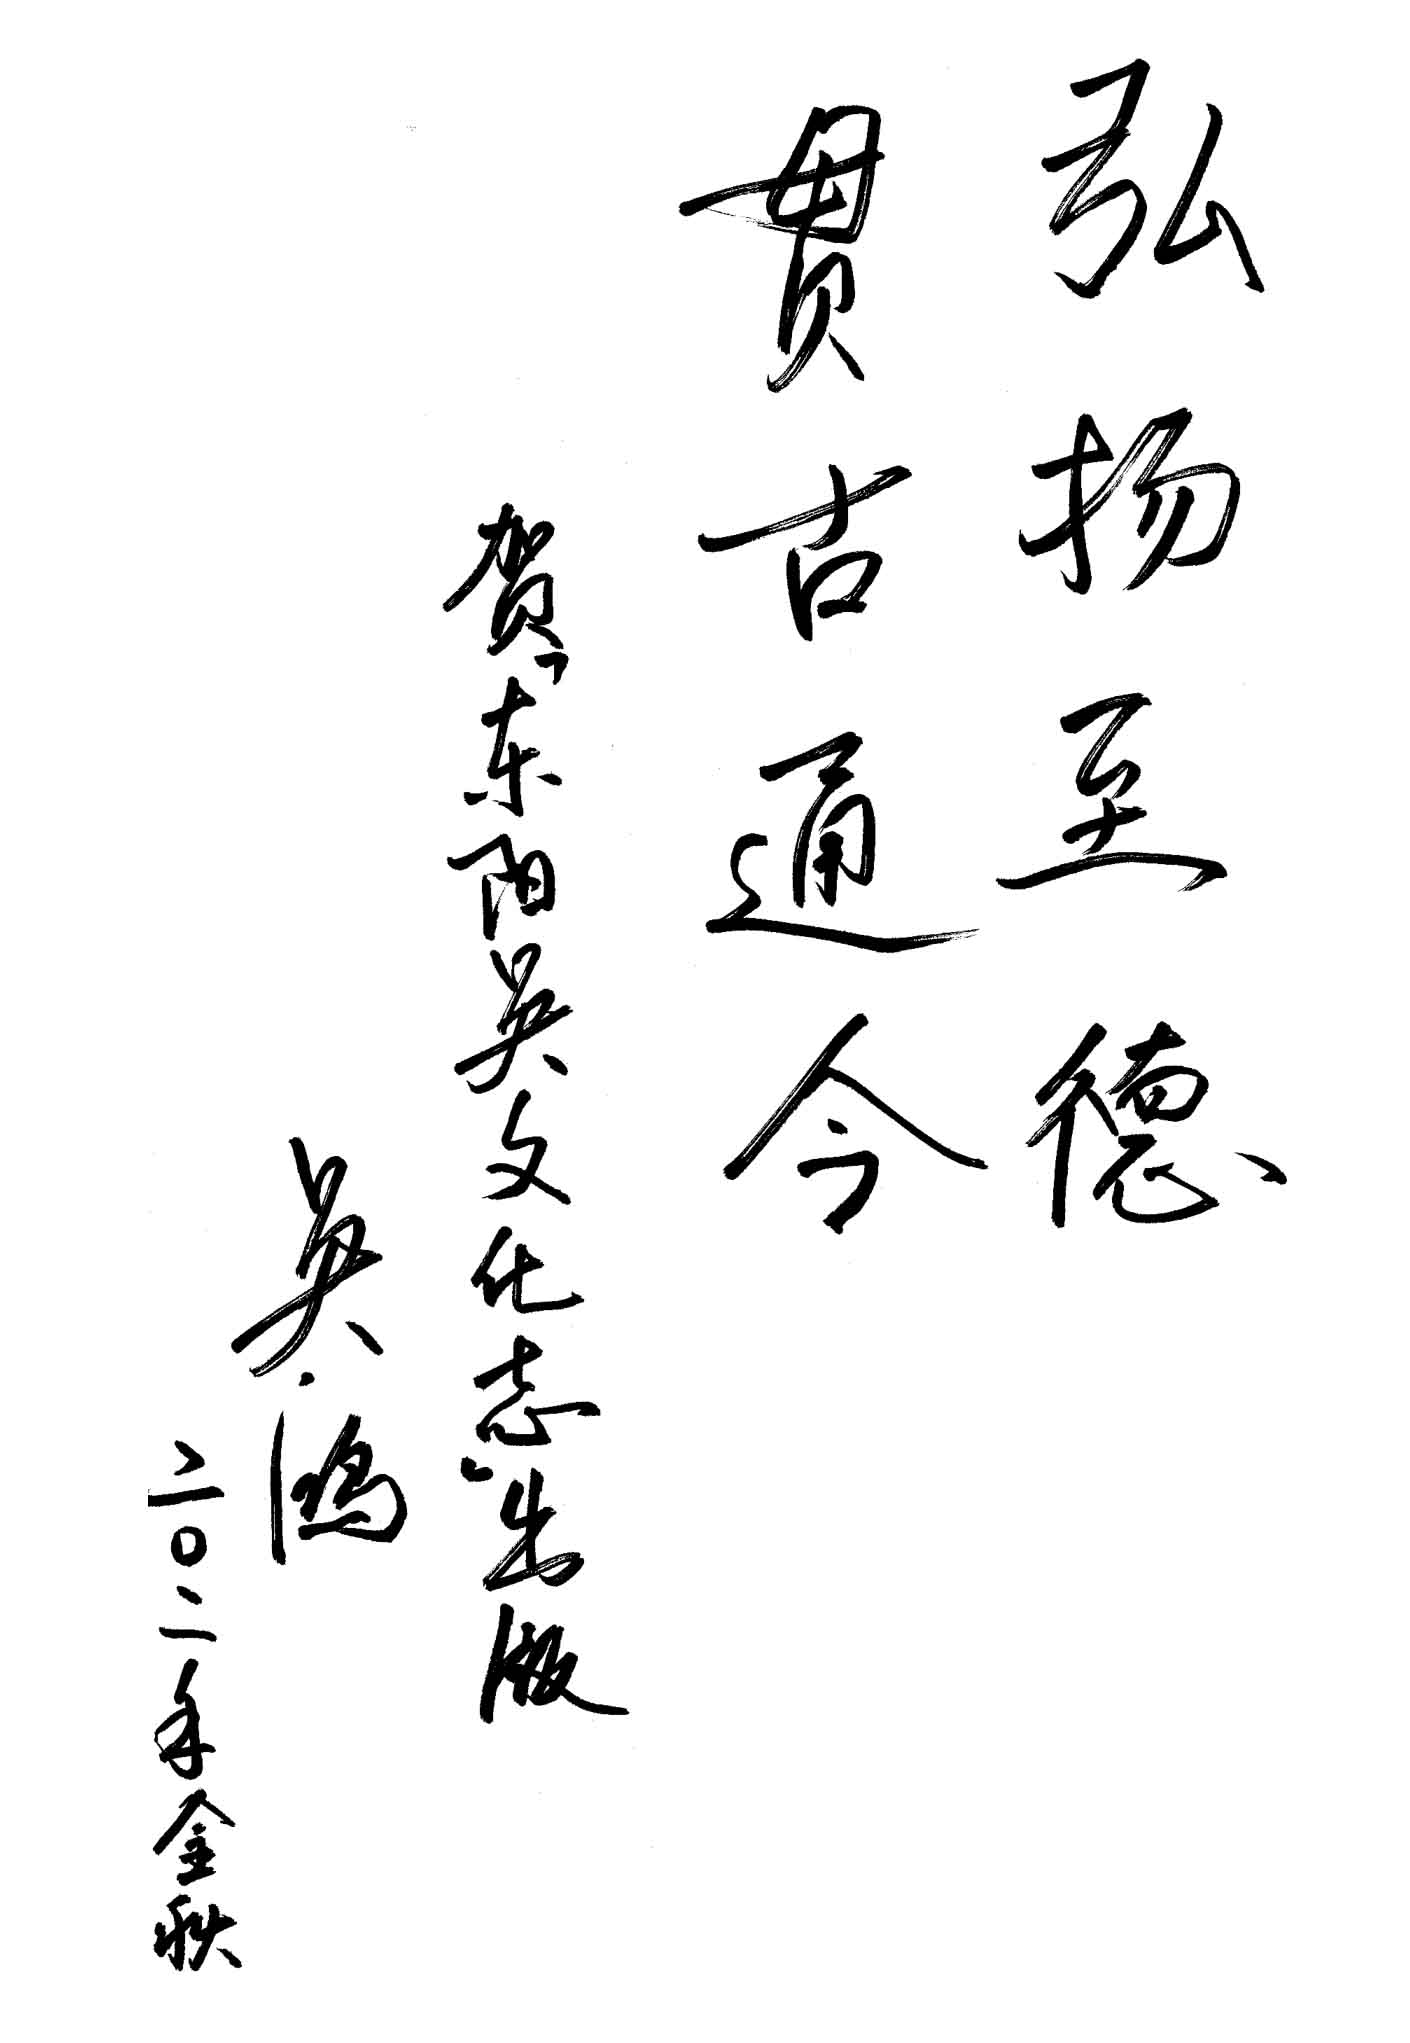 弘扬至德
贯古通今
贺“东阳吴文化志”出版
吴鸿
二〇二年金秋